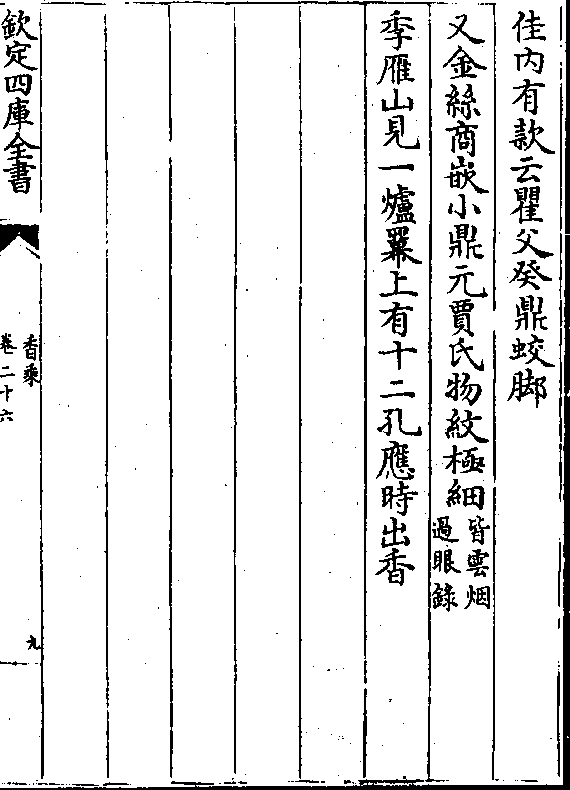 佳内有款云瞿父癸鼎蛟脚
又金絲商嵌小鼎元賈氏物紋極細皆雲烟
過眼錄
季雁山見一爐羃上有十二孔應時出香
欽定四庫全書
香乘
卷二十六
九